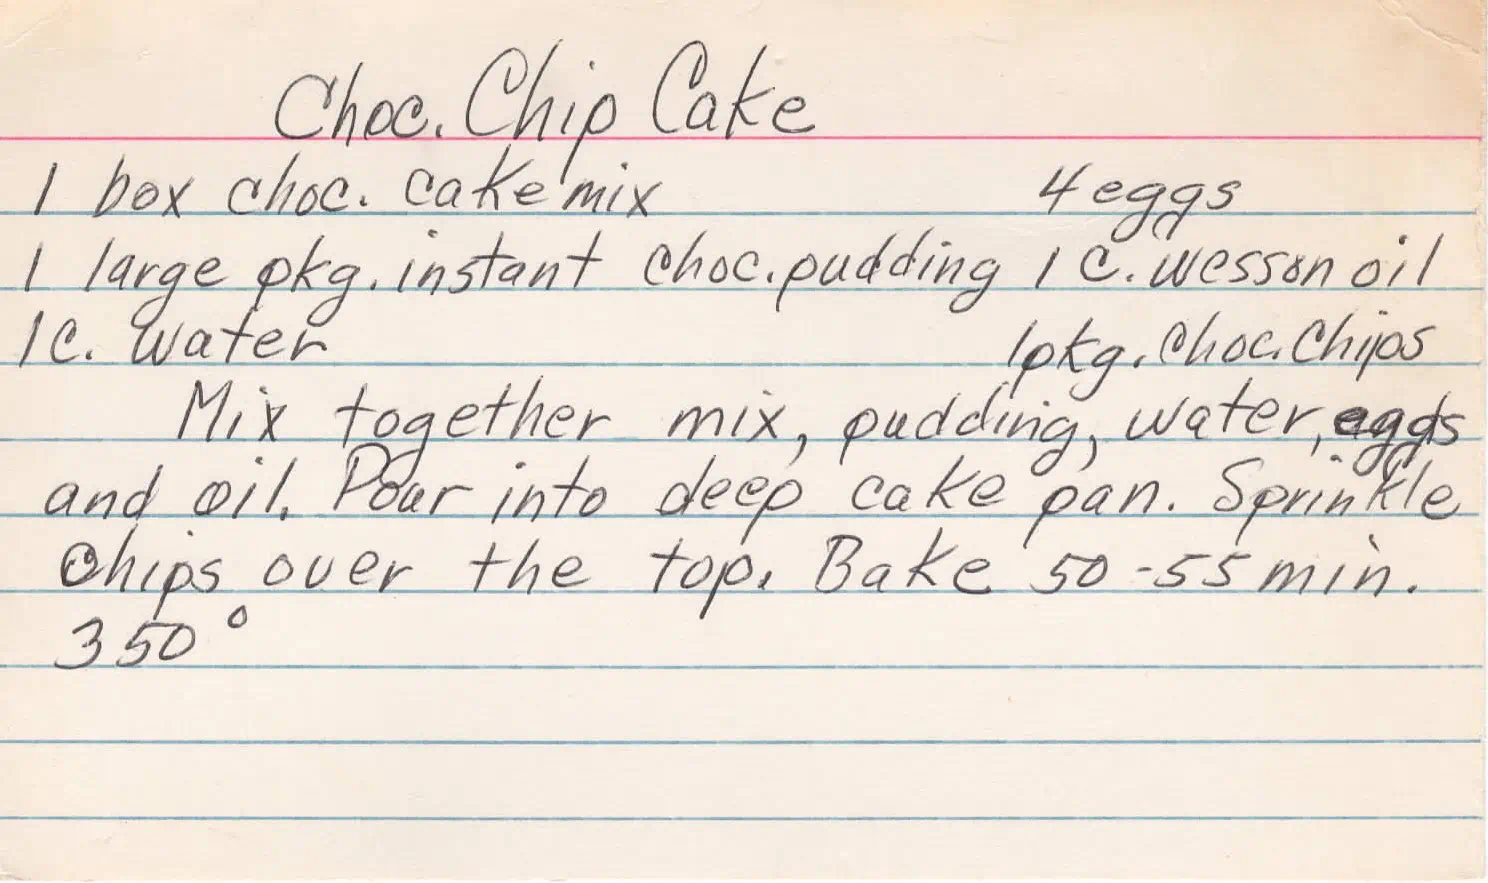 Choc. Chip Cake
1 box choc. cake mix 4 eggs
1 large pkg. instant choc. pudding 1 C. wesson oil
1 C. water 1 pkg. Choc. Chips
Mix together mix, pudding, water, eggs
and oil. Pour into deep cake pan. Sprinkle
Chips over the top. Bake 50-55 min.
350°